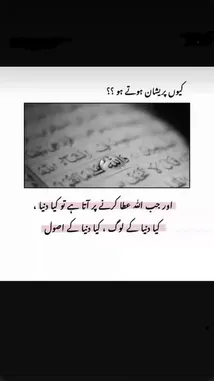 کیوں پریشان ہوتے ہو ؟؟
اور جب اللہ عطا کرنے پر آتا ہے تو کیا دنیا ،
کیا دنیا کے لوگ ، کیا دنیا کے اصول